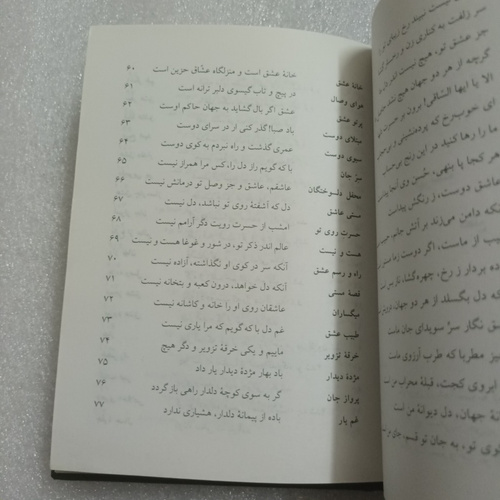 خانهٔ عشق خانهٔ عشق است و منزلگاه عشّاق حزین است ۶۰
هوای وصال در پیچ و تاب گیسوی دلبر ترانه است ۶۱
پرتو عشق عشق اگر بال گشاید به جهان حاکم اوست ۶۲
مبتلای دوست باد صبا! گذر کنی ار در سرای دوست ۶۳
سبوی دوست عمری گذشت و راه نبردم به کوی دوست ۶۴
سرّ جان با که گویم راز دل را، کس مرا همراز نیست ۶۵
محفل دلسوختگان عاشقم، عاشق و جز وصل تو درمانش نیست ۶۶
مستی عاشق دل که آشفتهٔ روی تو نباشد، دل نیست ۶۷
حسرت روی تو امشب از حسرت رویت دگر آرامم نیست ۶۸
هست و نیست عالم اندر ذکر تو، در شور و غوغا هست و نیست ۶۹
راه و رسم عشق آنکه سر در کوی او نگذاشته، آزاده نیست ۷۰
قصهٔ مستی آنکه دل خواهد، درون کعبه و بتخانه نیست ۷۱
میگساران عاشقان روی او را خانه و کاشانه نیست ۷۲
طبیب عشق غم دل با که گویم که مرا یاری نیست ۷۳
خرقهٔ تزویر ماییم و یکی خرقهٔ تزویر و دگر هیچ ۷۴
مژدهٔ دیدار باد بهار مژدهٔ دیدار یار داد ۷۵
پرواز جان گر به سوی کوچهٔ دلدار راهی بازگردد ۷۶
غم یار باده از پیمانهٔ دلدار، هشیاری ندارد ۷۷
جز عشق تو، هیچ نیست اندر دل
گرچه از هر دو جهان هیچ نشد
الا یا ایها الساقی! برون بر حسرت
ما را رها کنید در این رنج بی‌حساب
هر کجا پا بنهی، حُسن وی آنجا
عاشق دوست، ز رنگش پیداست